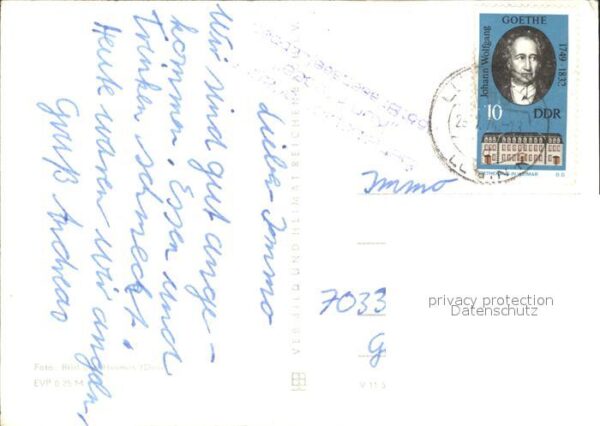 Lieber Immo
Wir sind gut ange-
kommen. Essen und
Trinken schmeckt.
Heute waren wir angeln,
Gruß Andreas
GOETHE
Johann Wolfgang
1749-1832
10
DDR
Immo
7033
G
privacy protection
Datenschutz
VEB BILD UND HEIMAT REICHENBACH
Foto:
EVP 0.25 M
V 11 5